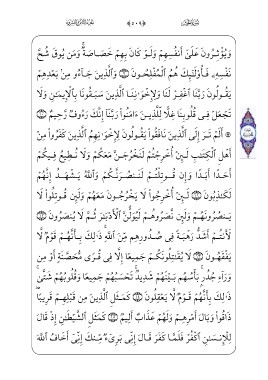 وَيُؤْثِرُونَ عَلَىٰٓ أَنفُسِهِمْ وَلَوْ كَانَ بِهِمْ خَصَاصَةٌ ۚ وَمَن يُوقَ شُحَّ
نَفْسِهِۦ فَأُو۟لَٰٓئِكَ هُمُ ٱلْمُفْلِحُونَ ۝٩ وَٱلَّذِينَ جَآءُو مِنۢ بَعْدِهِمْ
يَقُولُونَ رَبَّنَا ٱغْفِرْ لَنَا وَلِإِخْوَٰنِنَا ٱلَّذِينَ سَبَقُونَا بِٱلْإِيمَٰنِ وَلَا
تَجْعَلْ فِى قُلُوبِنَا غِلًّا لِّلَّذِينَ ءَامَنُوا۟ رَبَّنَآ إِنَّكَ رَءُوفٌ رَّحِيمٌ ۝١٠
۞ أَلَمْ تَرَ إِلَى ٱلَّذِينَ نَافَقُوا۟ يَقُولُونَ لِإِخْوَٰنِهِمُ ٱلَّذِينَ كَفَرُوا۟ مِنْ
أَهْلِ ٱلْكِتَٰبِ لَئِنْ أُخْرِجْتُمْ لَنَخْرُجَنَّ مَعَكُمْ وَلَا نُطِيعُ فِيكُمْ
أَحَدًا أَبَدًا وَإِن قُوتِلْتُمْ لَنَنصُرَنَّكُمْ وَٱللَّهُ يَشْهَدُ إِنَّهُمْ
لَكَٰذِبُونَ ۝١١ لَئِنْ أُخْرِجُوا۟ لَا يَخْرُجُونَ مَعَهُمْ وَلَئِن قُوتِلُوا۟ لَا
يَنصُرُونَهُمْ وَلَئِن نَّصَرُوهُمْ لَيُوَلُّنَّ ٱلْأَدْبَٰرَ ثُمَّ لَا يُنصَرُونَ ۝١٢
لَأَنتُمْ أَشَدُّ رَهْبَةً فِى صُدُورِهِم مِّنَ ٱللَّهِ ۚ ذَٰلِكَ بِأَنَّهُمْ قَوْمٌ لَّا
يَفْقَهُونَ ۝١٣ لَا يُقَٰتِلُونَكُمْ جَمِيعًا إِلَّا فِى قُرًى مُّحَصَّنَةٍ أَوْ مِن
وَرَآءِ جُدُرٍۭ ۚ بَأْسُهُم بَيْنَهُمْ شَدِيدٌ ۚ تَحْسَبُهُمْ جَمِيعًا وَقُلُوبُهُمْ شَتَّىٰ ۚ
ذَٰلِكَ بِأَنَّهُمْ قَوْمٌ لَّا يَعْقِلُونَ ۝١٤ كَمَثَلِ ٱلَّذِينَ مِن قَبْلِهِمْ قَرِيبًا ۖ
ذَاقُوا۟ وَبَالَ أَمْرِهِمْ وَلَهُمْ عَذَابٌ أَلِيمٌ ۝١٥ كَمَثَلِ ٱلشَّيْطَٰنِ إِذْ قَالَ
لِلْإِنسَٰنِ ٱكْفُرْ فَلَمَّا كَفَرَ قَالَ إِنِّى بَرِىٓءٌ مِّنكَ إِنِّىٓ أَخَافُ ٱللَّهَ